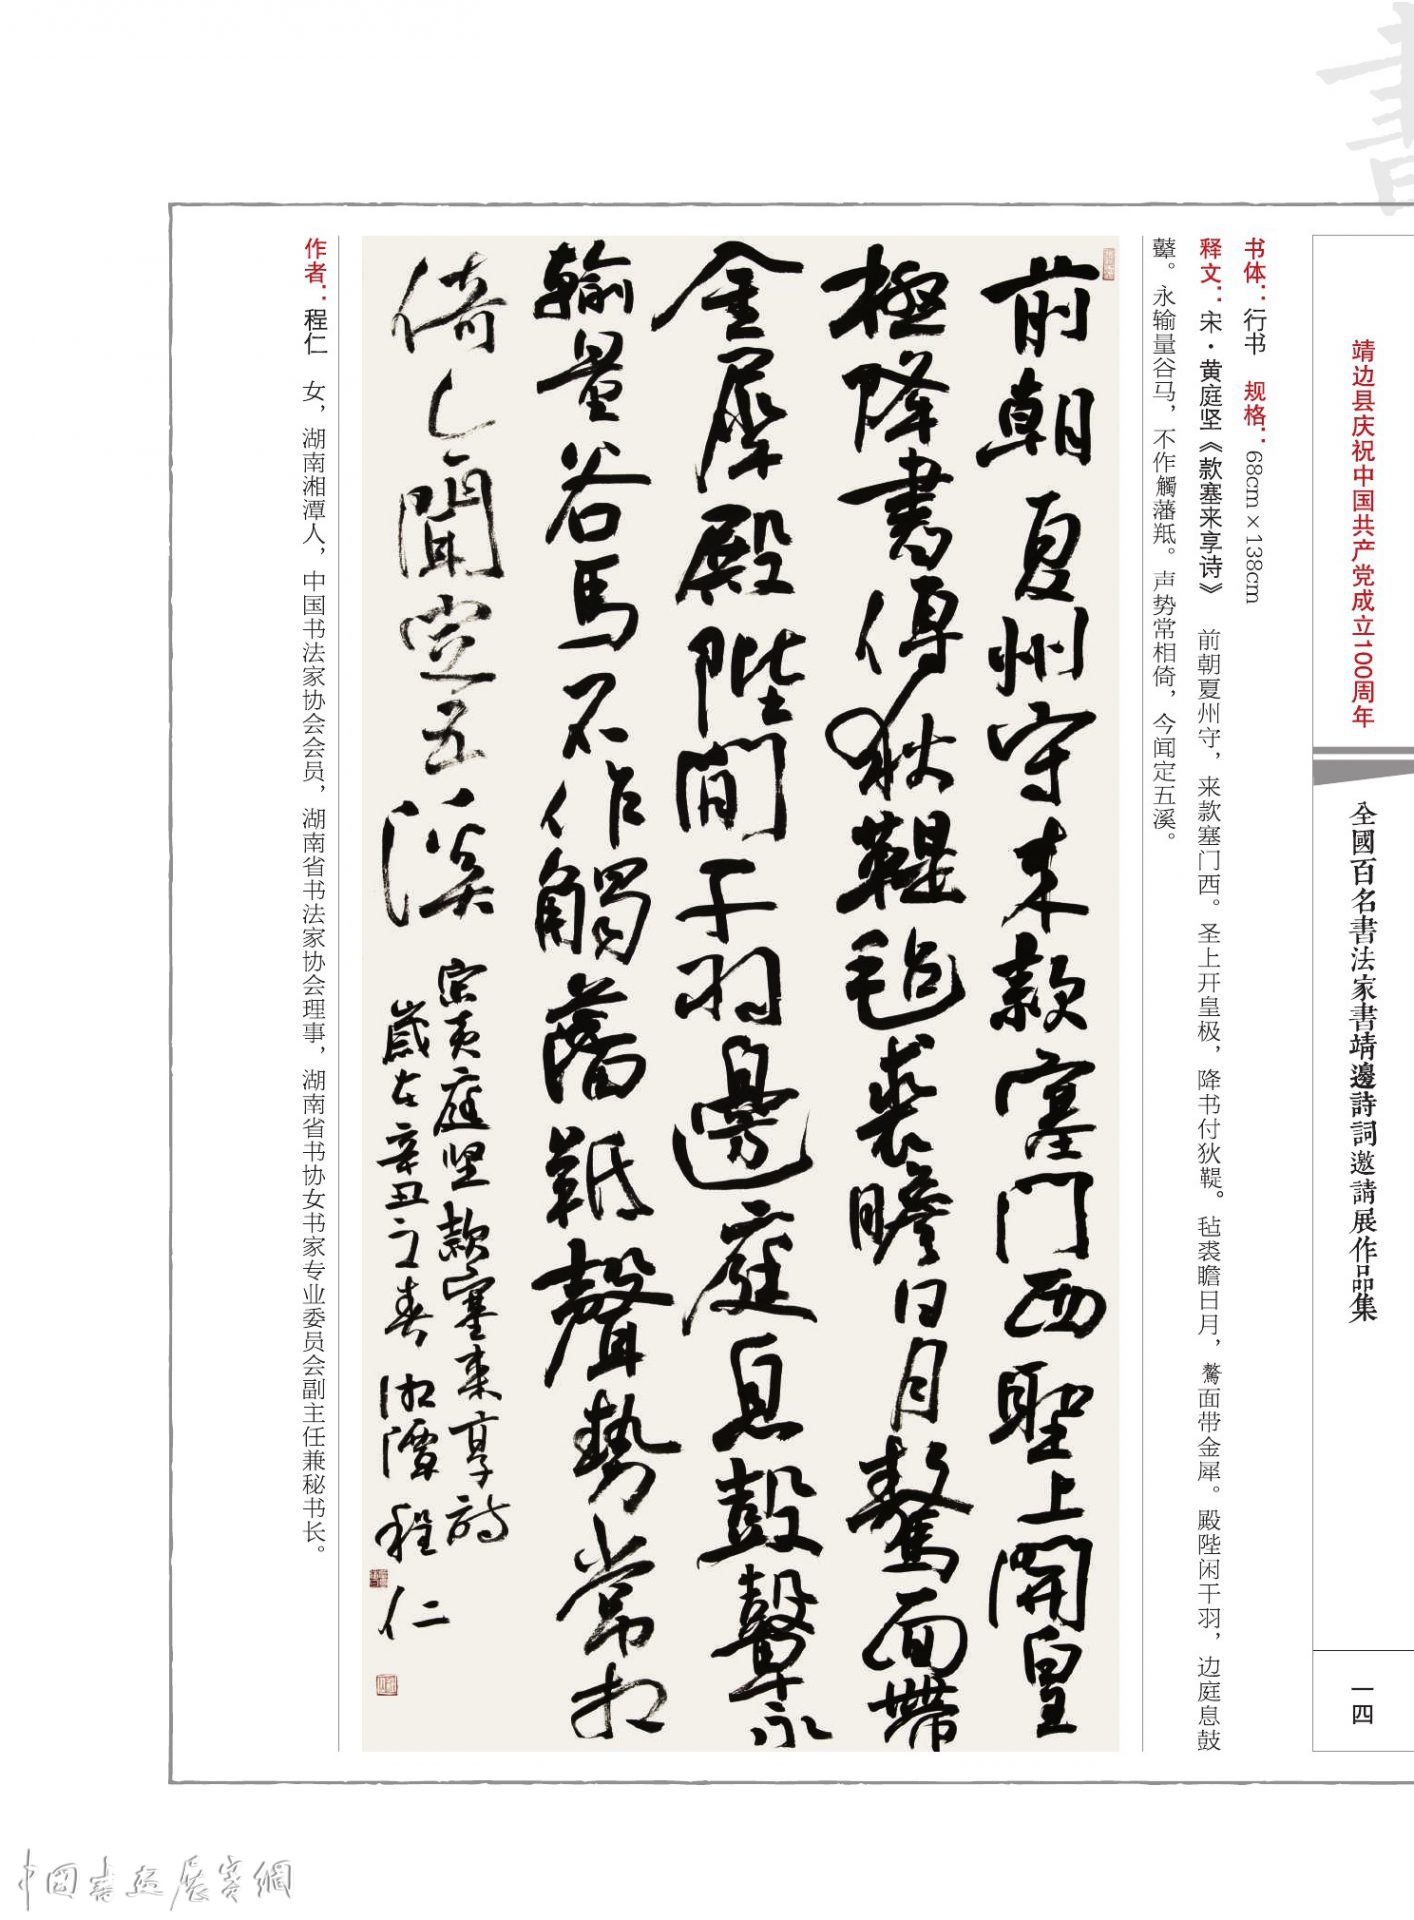 書
靖边县庆祝中国共产党成立100周年
全國百名書法家書靖邊詩詞邀請展作品集
一四
书体：行书 规格：68cm×138cm
释文：宋·黄庭坚《款塞来享诗》 前朝夏州守，来款塞门西。圣上开皇极，降书付狄鞮。毡裘瞻日月，驁面带金犀。殿陛闲干羽，边庭息鼓
鼙。永输量谷马，不作觸藩羝。声势常相倚，今闻定五溪。
前朝夏州守来款塞門西聖上開皇
極降書傅狄鞮毡裘瞻日月驁面帶
金犀殿陛閒干羽邊庭息鼓鼙永
輸量谷馬不作觸藩羝聲勢常相
倚今聞定五溪
宋黄庭坚款塞来享诗
歲在辛丑之春湘潭程仁
作者：程仁 女，湖南湘潭人，中国书法家协会会员，湖南省书法家协会理事，湖南省书协女书家专业委员会副主任兼秘书长。
中國書画展賽網